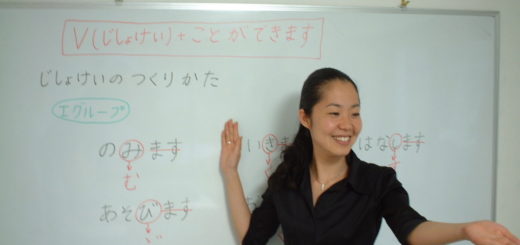 V(じしょけい)+ことができます
じしょけいのつくりかた
Iグループ
のみます いきま はなします
む
あそびます
ぶ